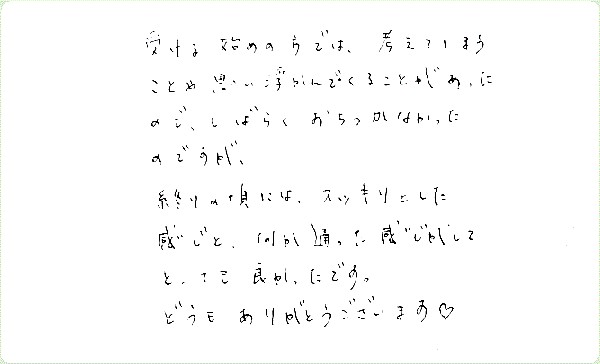 受ける始めのうでは、考えてしまう
ことや思い浮かんでくることがあった
ので、しばらくおちつかなかった
のですが、
終りの頃には、スッキリとした
感じと、何か通った感じがして
とっても良かったです。
どうもありがとうございます♡